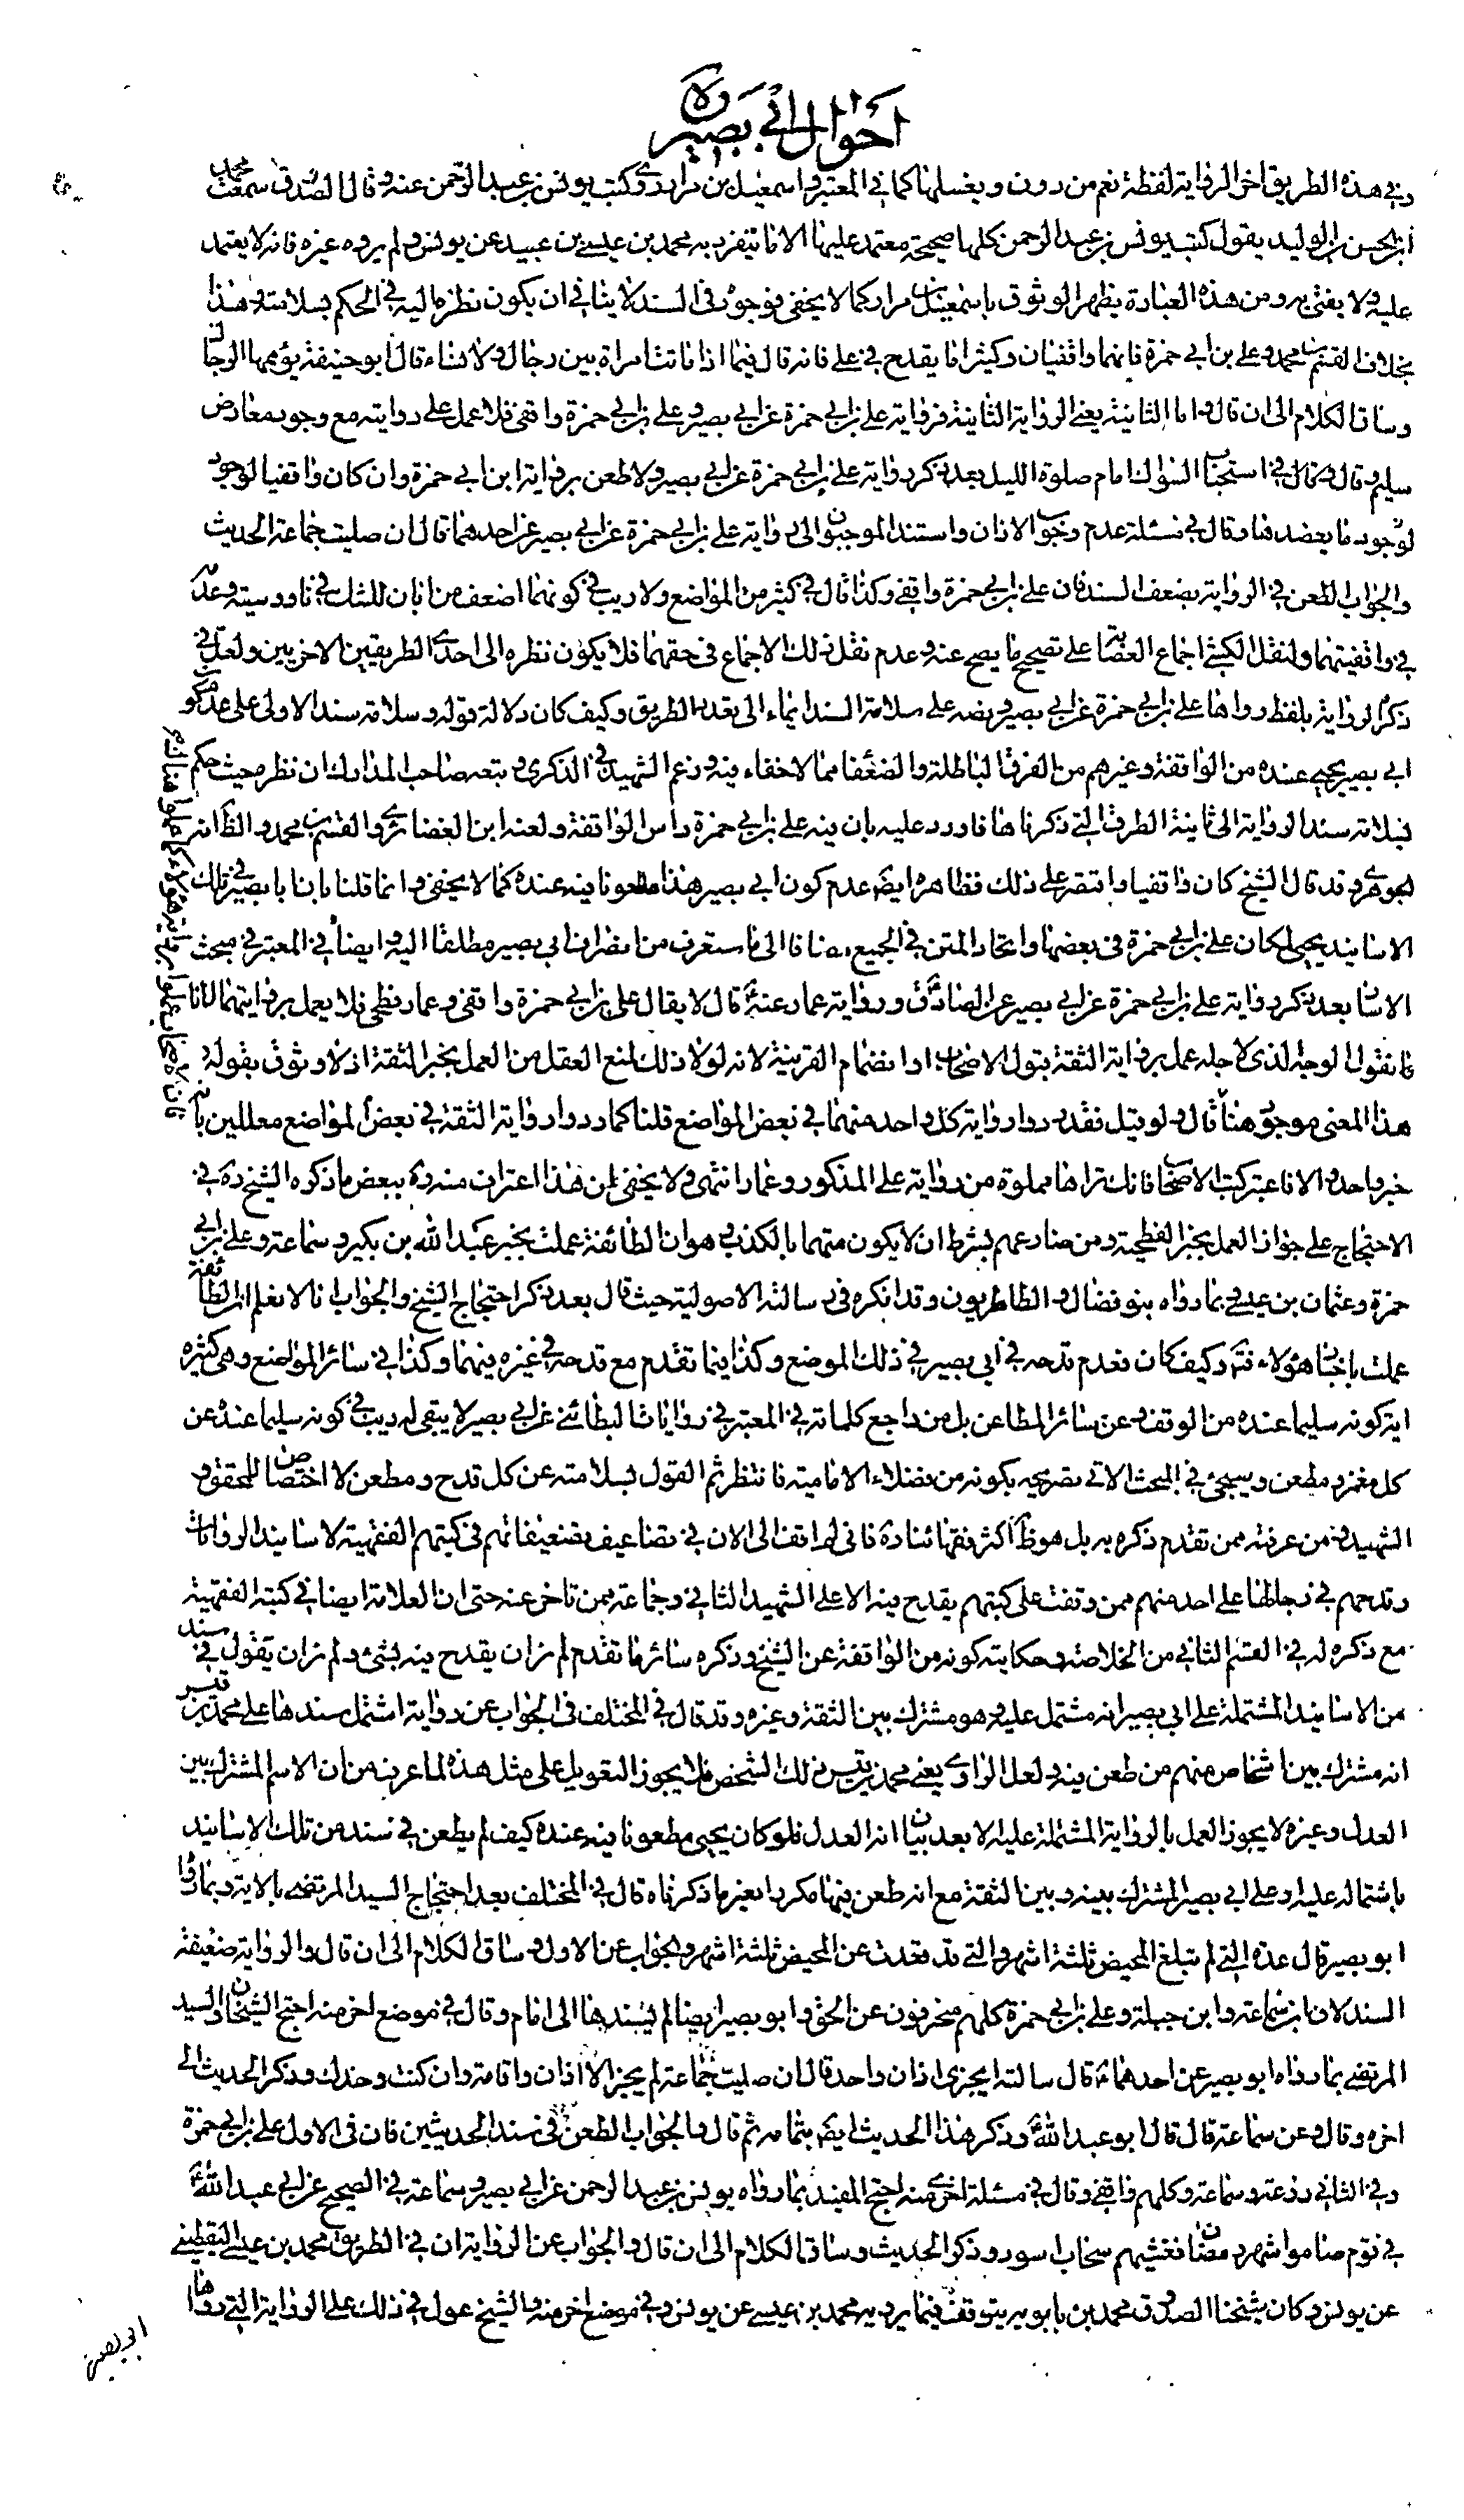 احوال ابي بصير
وفي هذه الطريق اخر الرواية لفظة نعم من دون ويغسلها كما في المعتبر واسمعيل بن مرار روى كتب يونس بن عبد الرحمن عنه وقال الصدوق سمعت محمد
ابن الحسن بن الوليد يقول كتب يونس بن عبد الرحمن كلها صحيحة معتمد عليها الا ما يتفرد به محمد بن عيسى بن عبيد عن يونس ولم يروه غيره فانه لا يعتمد
عليه ولا يفتى به ومن هذه العبارة يظهر الوثوق باسمعيل بن مرار كما لا يخفى فوجوده في السند لا ينافي ان يكون نظره اليه في الحكم بسلامته وهذا
بخلاف القسم بن محمد وعلي بن ابي حمزة فانهما واقفيان وكثيرا ما يقدح في علي فانه قال فيما اذا ماتت امراة بين رجال ولا نساء قال ابو حنيفة يؤممها الرجال
وساق الكلام الى ان قال واما الثانية يعني الرواية الثانية فرواية علي بن ابي حمزة عن ابي بصير وعلي بن ابي حمزة واقفي فلا عمل على روايته مع وجود معارض
سليم وقال وقال في استحباب السواك امام صلوة الليل بعد ذكر رواية علي بن ابي حمزة عن ابي بصير ولا طعن برواية ابن ابي حمزة وان كان واقفيا لوجود
لوجود ما يعضدها وقال في مسئلة عدم وجوب الاذان واستند الموجبون الى رواية علي بن ابي حمزة عن ابي بصير عن احدهما قال ان صليت جماعة الحديث
والجواب الطعن في الرواية بضعف السند فان علي بن ابي حمزة واقفي وكذا قال في كثير من المواضع ولا ريب في كونهما اضعف من ابان للشك في ناووسيته وعدمه
في واقفيتهما ولنقل الكشي اجماع العصابة على تصحيح ما يصح عنه وعدم نقل ذلك الاجماع في حقهما فلا يكون نظره الى احدى الطريقين الاخريين ولعل في
ذكر الرواية بلفظ رواها علي بن ابي حمزة عن ابي بصير ونصه على سلامة السند ايماء الى تعدد الطريق وكيف كان دلالة قوله وسلامة سند الاولى على عدم كون
ابي بصير يحيى عنده من الواقفة وغيرهم من الفرق الباطلة والضعفا مما لا خفاء فيه وزعم الشهيد في الذكرى وتبعه صاحب المدارك ان نظره حيث حكم
بسلامة سند الرواية الى ثانية الطرق التي ذكرناها فاورد عليه بان فيه علي بن ابي حمزة راس الواقفة ولعنه ابن الغضائري والقسم بن محمد والظاهر انه
الجوهري وقد قال الشيخ كان واقفيا واقتصر على ذلك فظاهره ايضا عدم كون ابي بصير هذا مطعونا فيه عنده كما لا يخفى وانما قلنا بان ابا بصير في تلك
الاسانيد يحيى لمكان علي بن ابي حمزة في بعضها واتحاد المتن في الجميع مضافا الى ما ستعرف من انصراف ابي بصير مطلقا اليه وايضا في المعتبر في مبحث
الاسئار بعد ذكر رواية علي بن ابي حمزة عن ابي بصير عن الصادق ورواية عمار عنه قال لا يقال علي بن ابي حمزة واقفي وعمار فطحي فلا يعمل بروايتهما لانا
فانقول الوجه الذي لاجله عمل برواية الثقة قبول الاصحاب او انضمام القرينة لانه لولا ذلك لمنع العقل من العمل بخبر الثقة اذ لا وثوق بقوله و
هذا المعنى موجود هنا قال ولو قيل فقد ردوا رواية كل واحد منهما في بعض المواضع قلنا كما ردوا رواية الثقة في بعض المواضع معللين بانه
خبر واحد والا فاعتبر كتب الاصحاب فانك تراها مملوة من رواية علي المذكور وعمار انتهى ولا يخفى ان هذا اعتراف منه ره ببعض ما ذكره الشيخ ره في
الاحتجاج على جواز العمل بخبر الفطحية ومن ضارعهم بشرط ان لا يكون متهما بالكذب وهو ان الطائفة عملت بخبر عبد الله بن بكير وسماعة وعلي بن ابي
حمزة وعثمان بن عيسى وبما رواه بنو فضال والطاطريون وقد انكره في رسالته الاصولية حيث قال بعد ذكر احتجاج الشيخ والجواب انا لا نعلم ان الطائفة
عملت باخبار هؤلاء فتدبر وكيف كان فعدم قدحه في ابي بصير في ذلك الموضع وكذا فيما تقدم مع قدحه في غيره فيهما وكذا في سائر المواضع وهي كثيرة
اية كونه سليما عنده من الوقف وعن سائر المطاعن بل من راجع كلماته في المعتبر في روايات البطائني عن ابي بصير لا يبقى له ريب في كونه سليما عنده عن
كل مغمز ومطعن وسيجئ في المبحث الاتي تصريحه بكونه من فضلاء الامامية فانتظر ثم القول بسلامته عن كل قدح ومطعن لا اختصاص للمحقق و
الشهيد ومن عرفته ممن تقدم ذكره به بل هو ظاهر اكثر فقهائنا ره فاني لم اقف الى الان في تضاعيف تضعيفاتهم في كتبهم الفقهية لاسانيد الروايات
وقدحهم في رجالها على احد منهم ممن وقفت على كتبهم يقدح فيه الا على الشهيد الثاني وجماعة ممن تاخر عنه حتى ان العلامة ايضا في كتبه الفقهية
مع ذكره له في القسم الثاني من الخلاصة وحكايته كونه من الواقفة عن الشيخ وذكره سائر ما تقدم لم نر ان يقدح فيه بشئ ولم نر ان يقول في سند
من الاسانيد المشتملة على ابي بصير انه مشتمل عليه وهو مشترك بين الثقة وغيره وقد قال في المختلف في الجواب عن رواية اشتمل سندها على محمد بن قيس
انه مشترك بين اشخاص منهم من طعن فيه ولعل الراوي يعني محمد بن قيس ذلك الشخص فلا يجوز التعويل على مثل هذه لما عرفته من ان الاسم المشترك بين
العدل وغيره لا يجوز العمل بالرواية المشتملة عليه الا بعد بيان انه العدل فلو كان يحيى مطعونا فيه عنده كيف لم يطعن في سند من تلك الاسانيد
باشتماله عليه او على ابي بصير المشترك بينه وبين الثقة مع انه طعن فيها مكررا بغير ما ذكرناه قال في المختلف بعد احتجاج السيد المرتضى بالاية وبما رواه
ابو بصير قال عدة التي لم تبلغ المحيض ثلثة اشهر والتي قد قعدت عن المحيض ثلثة اشهر والجواب عن الاول وساق الكلام الى ان قال والرواية ضعيفة
السند لان ابن سماعة وابن جبلة وعلي بن ابي حمزة كلهم منحرفون عن الحق وابو بصير ايضا لم يسندها الى امام وقال في موضع اخر منه احتج الشيخان والسيد
المرتضى بما رواه ابو بصير عن احدهما قال سالته ايجزي اذان واحد قال ان صليت جماعة لم يجز الا اذان واقامة وان كنت وحدك وذكر الحديث الى
اخره وقال وعن سماعة قال قال ابو عبد الله وذكر هذا الحديث ايضا بتمامه ثم قال والجواب الطعن في سند الحديثين فان في الاول علي بن ابي حمزة
وفي الثاني زرعة وسماعة وكلهم واقفي وقال في مسئلة اخرى منه احتج المفيد بما رواه يونس بن عبد الرحمن عن ابي بصير وسماعة في الصحيح عن ابي عبد الله
في قوم صاموا شهر رمضان فغشيهم سحاب اسود وذكر الحديث وساق الكلام الى ان قال والجواب عن الرواية ان في الطريق محمد بن عيسى اليقطيني
عن يونس وكان شيخنا الصدوق محمد بن بابويه يتوقف فيما يرويه محمد بن عيسى عن يونس وفي موضع اخر منه والشيخ عول في ذلك على الرواية التي رواها
ابو بصير